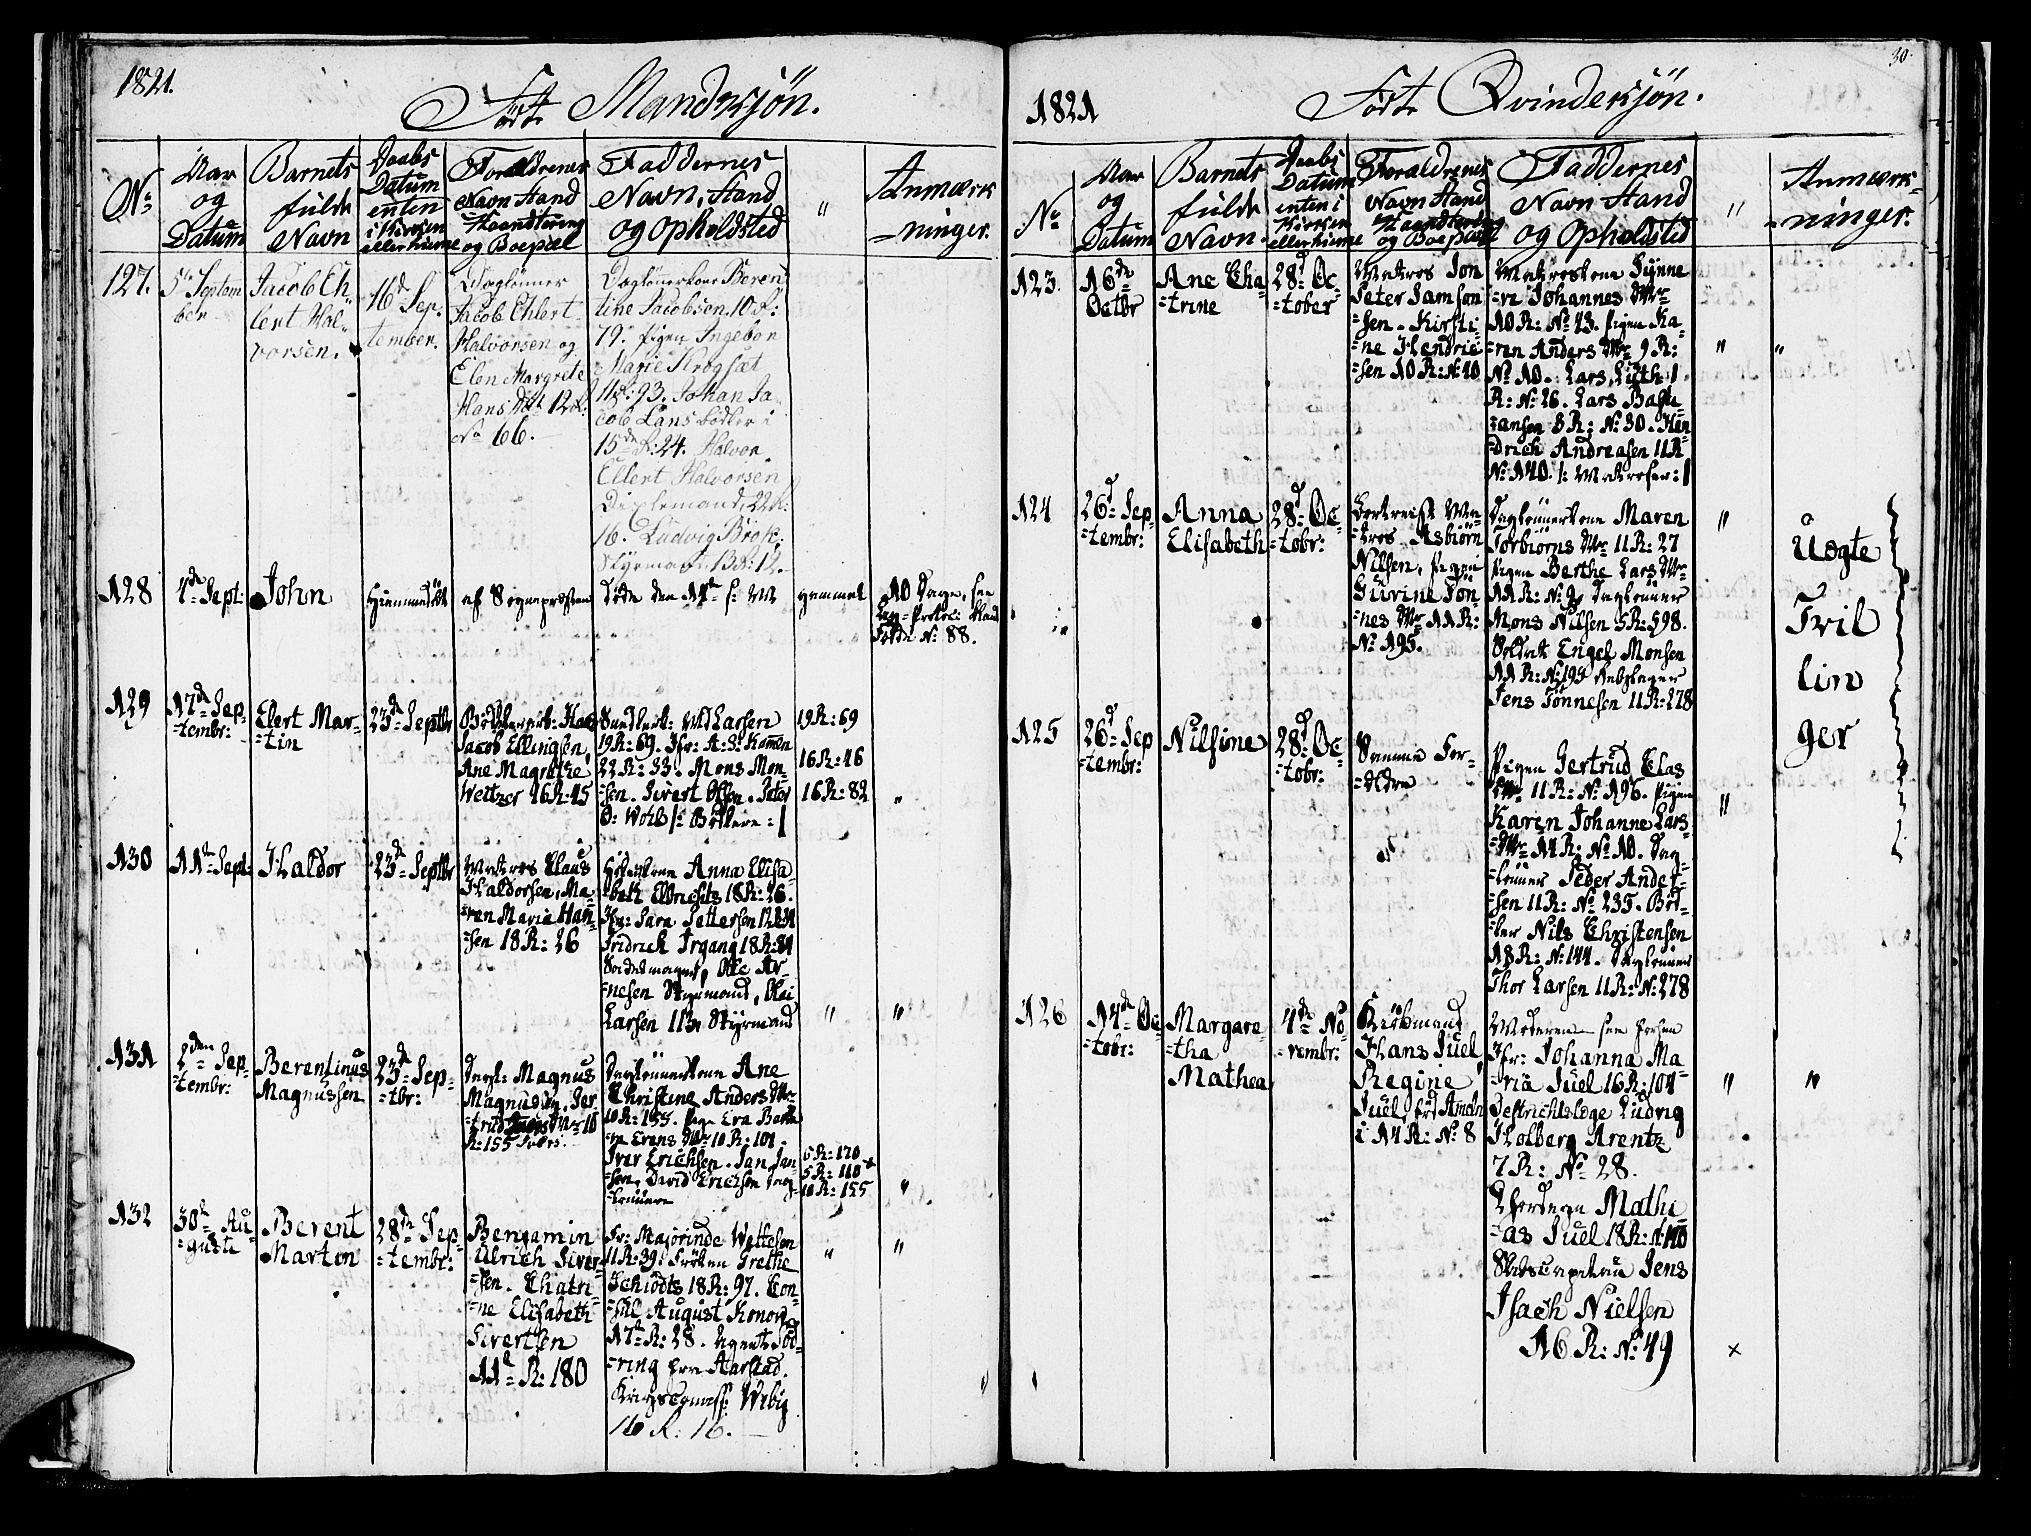 1821.
Født Mandkjön.
No
Aar
og
Datum
Barnets
fulde
Navn
Daabs
Datum
enten
i Kirken
eller hieme
Forældrenes
Navn Stand
Haandtering
og Boepæl
Faddernes
Navn, Stand
og Opholdsted
"
Anmærk
=ninger.
127.
5te Septem
ber
Jacob Eh-
lert Hal-
vorsen.
16d Sep-
tember.
Dagleunner
Jacob Ehlert
Halvorsen og
Elen Margrete
Hans Dttr 12 R:
No 66.
Dagleunerkone Beren
tine Jacobsen 10 R:
79. Pigen Ingebor
Marie Krogsæt
11 R: 93. Johan Ja
cob Lans bödker i
15de R: 24. Halvor
Ellert Halvorsen
22 R:
16. Ludvig Brok.
Styrmand, 13 R: 12.
128
4de Sept:
John
Hiemmedöbt
af Sognepræsten
döde den 14de s: M
gammel
10 Dage, see
Døde No: 88.
129
17de Sep-
tembr:
Elert Mar-
=tin
23de Septbr
Jacob Ellingsen,
Ane Magrethe
Weltzer 16 R: 45
Larsen
19 R: 69. Jfr: A: S: Kamen
22 R: 33. Mons Mon-
=sen. Sivert Olsen. Peter
19 R: 69
16 R: 46
16 R: 82
"
130
11te Sept:
Haldor
23de Septbr
Matros Claus
Haldorsen, Ma-
=ren Maria Han-
=sen 18 R: 26
Anna Elisa-
=beth Elbrechts 18 R: 26.
Jfr: Sara Pettersen 12 R: 24
Fridrich Irgang 18 R: 34
Ole Ar-
=nesen Styrmand, Olai
Larsen 113. Styrmand
"
"
131
2den Sep-
tembr:
Berentinus
Magnussen
23de Sep-
=tbr:
Dagl: Magnus
Magnussen, Ger
=trud
R: 155
Dagleunerkone Ane
Christine Anders Dttr
10 R: 155. Pige Eva Barba
ra Evens Dttr 10 R: 101.
Iver Erichsen. Jan Jan-
=sen, David Erichsen Dag-
=leunere
6 R: 170
5 R: 110
10 R: 155
"
132
30te Au
=guste
Berent
Marton
28de Sep-
=tembr:
Bengamin
Ulrich Siver-
=sen. Chatri-
=ne Elisabeth
Sivertsen
11te R: 180
Fr: Majorinde Wettesen
11 R: 39. Fröken Grethe
Schiödts 18 R: 97. Con-
=sul August Konow
17de R: 28. Agent Dö-
=ring for Aarstad.
Krigscomiss: Wibÿ
16 R: 16.
"
"
30.
1821
Født Qvindekjön.
No
Aar
og
Datum
Barnets
fulde
Navn
Daabs
Datum
enten i
Kirken
eller hieme
Forældrenes
Navn Stand
Haandtering
og Boepæl
Faddernes
Navn Stand
og Opholdsted
"
Anmærk-
=ninger.
123.
16de
Octbr
Ane Cha-
=trine
28d Oc-
=tober
Matros Jon
Peter Samson
=sen. Kirsti-
=ne Hendric-
sen 10 R: No: 40
Matroskone Synne
=ve Johannes Dttr
10 R: No 43. Pigen Ka-
=ren Anders Dttr 9 R:
No 10. Lars Lüth 1
R: No 26. Lars Basti-
=ansen 3 R: No 30. Hen-
=drich Andreasen 11 R
No 140. /: Matroser: /
"
"
124
26d Sep-
=tembr:
Anna
Elisabeth
28d Oc-
=tobr:
Bortreist Ma-
=tros Asbiörn
Nilsen, Pigen
Gurine Tön-
nes Dttr 11 R:
No 195.
Dagleunerkone Maren
Torbiörns Dttr 11 R: 27
Pigen Berthe Lars Dttr
11 R: No 9, Dagleuner
Mons Nilsen 5 R: 598.
Soldat Engel Monsen
11 R: No 195 Rebslager
Jens Tönnesen 11 R: 278
"
Uægte
Tvil
lin
ger
125
26d Sep
=tembr:
Nilsine
28d Oc
=tobr:
Samme For-
=ældre
Pigen Gertrud Clas
Dttr 11 R: No 196. Pigen
Karen Johanne Lars
Dttr 14 R: No 10. Dag-
=leuner Peder Ander-
=sen 11 R: No 235. Böd-
=ker Nils Christensen
18 R: No 144. Dagleuner
Thor Larsen 11 R: No 278
"
126
14de Oc-
=tobr:
Margare-
=tha
Mathea
4de No
=vembr:
Kiöbmand
Hans Juel
Regine
Juel, född Ameln
i 14 R: No 8
Moderen
Jfr: Johanna Ma-
=ria Juel 16 R: 104
Destrichtslæge Ludvig
Holberg Arentz
7 R: No 28.
Mathi
=as Juel 18 R: No 110
Skibscapitain Jens
Isach Nielsen
16 R: No 49
"
"
×